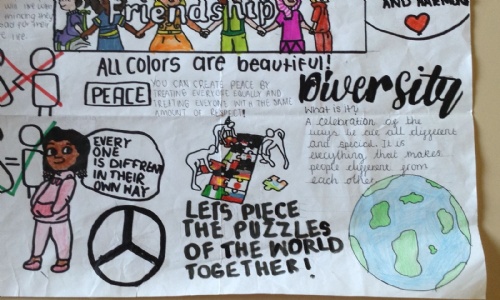 Friendship
AND
ALL COLORS are beautiful!
PEACE
YOU CAN CREATE PEACE BY
TREATING EVERYONE EQUALLY AND
TREATING EVERYONE WITH THE SAME
AMOUNT OF RESPECT!
Diversity
What is it?
A celebration of the
ways we are all different
and special. It is
everything that makes
people different from
each other.
EVERY
ONE
IS DIFFEREN
IN THEIR
OWN WAY
LETS PIECE
THE PUZZLES
OF THE WORLD
TOGETHER!